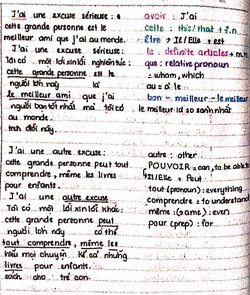 J'ai une excuse sérieuse :
cette grande personne est le
meilleur ami que j'ai au monde.
J'ai une excuse sérieuse:
Tôi có một lời xin lỗi nghiêm túc:
cette grande personne est le
người lớn này là
le meilleur ami que j'ai
người bạn tốt nhất mà tôi có
au monde.
trên đời này.
avoir : J'ai
cette : this/that + f.n
être → Il/Elle + est
le : definite articles + m.n
que : relative pronoun
= whom, which
au = à le
bon - meilleur - le meilleur
le meilleur is so sánh nhất
J'ai une autre excuse:
cette grande personne peut tout
comprendre, même les livres
pour enfants.
J'ai une autre excuse
Tôi có một lời xin lỗi khác:
cette grande personne peut
người lớn này có thể
tout comprendre, même les
hiểu mọi chuyện kể cả những
livres pour enfants.
sách cho trẻ con.
autre : other
POUVOIR = can, to be able to
Il/Elle + Peut
tout (pronoun) : everything
comprendre = to understand
même : (same) : even
pour (prep) : for